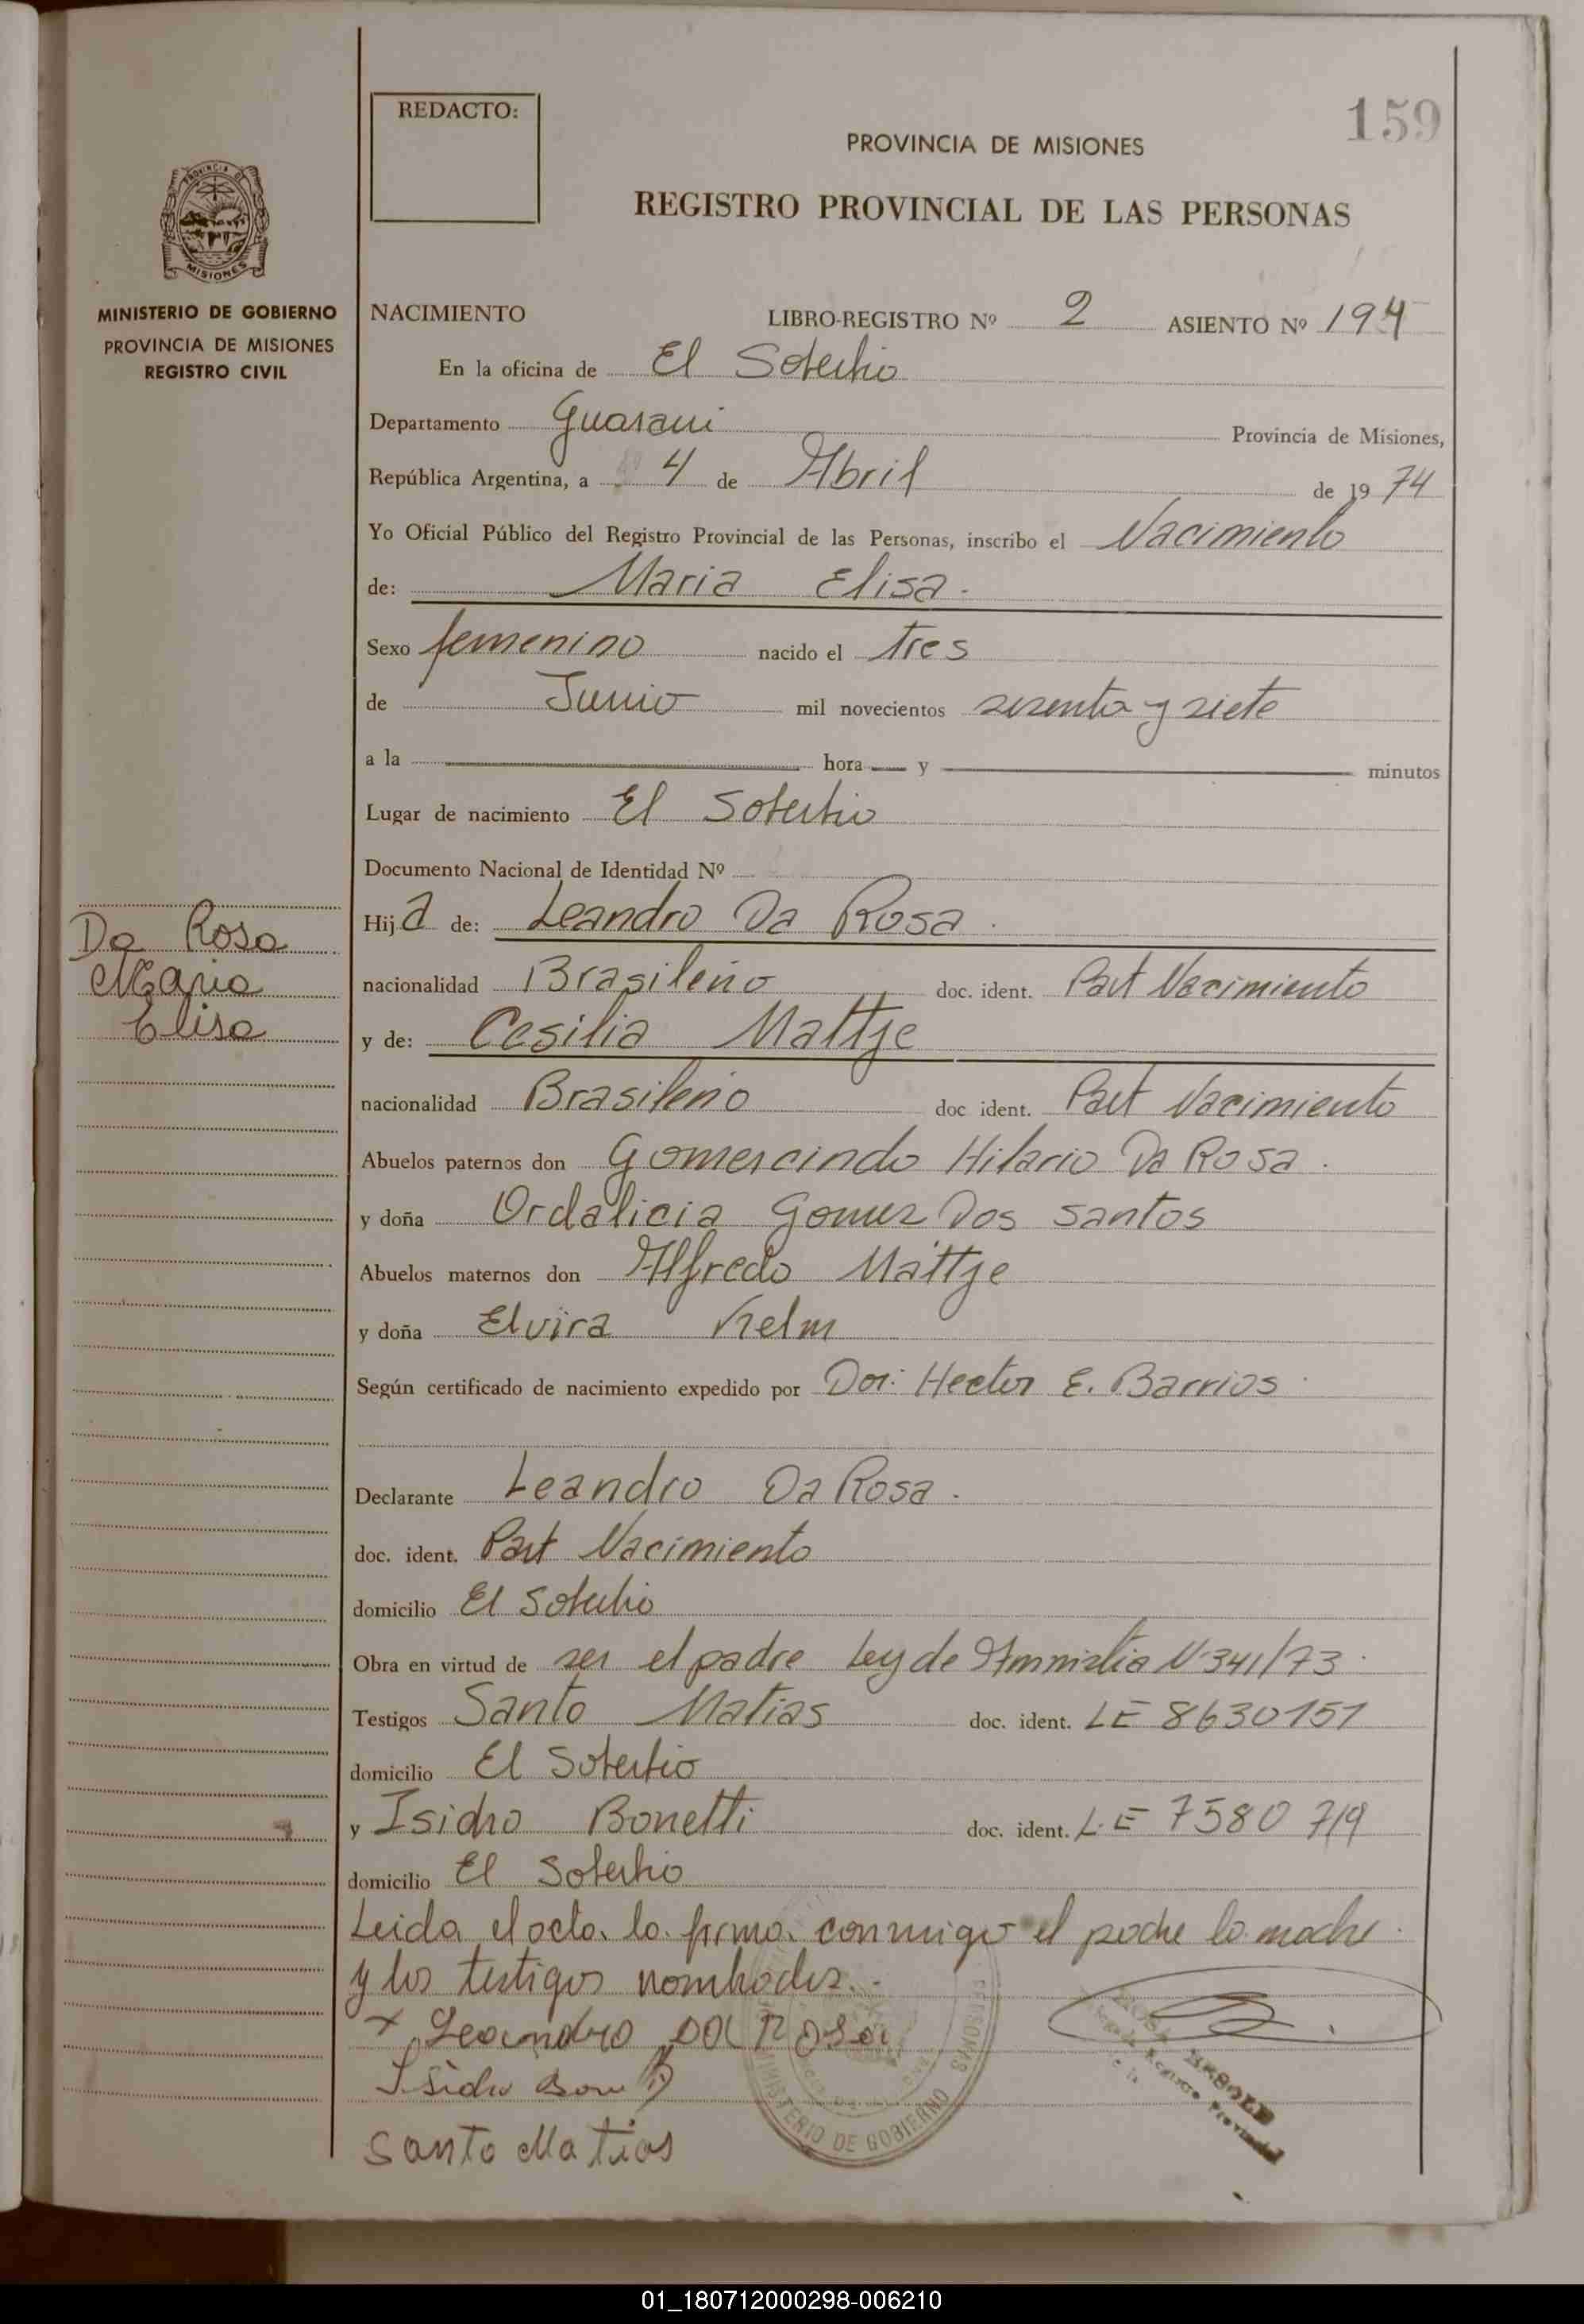 REDACTO:
159
PROVINCIA DE MISIONES
REGISTRO PROVINCIAL DE LAS PERSONAS
MINISTERIO DE GOBIERNO
PROVINCIA DE MISIONES
REGISTRO CIVIL
NACIMIENTO LIBRO-REGISTRO Nº 2 ASIENTO Nº 194
En la oficina de El Soberbio
Departamento Guarani Provincia de Misiones,
República Argentina, a 4 de Abril de 1974
Yo Oficial Público del Registro Provincial de las Personas, inscribo el Nacimiento
de: Maria Elisa.
Sexo femenino nacido el tres
de Junio mil novecientos sesenta y siete
a la hora y minutos
Lugar de nacimiento El Soberbio
Documento Nacional de Identidad Nº
Da Rosa
Maria
Elisa
Hija de: Leandro Da Rosa.
nacionalidad Brasileño doc. ident. Part Nacimiento
y de: Cesilia Mattje
nacionalidad Brasileño doc ident. Part Nacimiento
Abuelos paternos don Gomercindo Hilario Da Rosa.
y doña Ordalicia Gomez Dos Santos
Abuelos maternos don Alfredo Mattje
y doña Elvira Kelm
Según certificado de nacimiento expedido por Dor: Hector E. Barrios
Declarante Leandro Da Rosa.
doc. ident. Part Nacimiento
domicilio El Soberbio
Obra en virtud de ser el padre Ley de Amnistia N 341/73.
Testigos Santo Matias doc. ident. LE 8630151
domicilio El Soberbio
y Isidro Bonetti doc. ident. L.E 7580719
domicilio El Soberbio
Leida el acta, la firma, conmigo el padre la madre
y los testigos nombrados.
x Leandro Da Rosa
Isidro
Santo Matias
MINISTERIO DE GOBIERNO
01_180712000298-006210